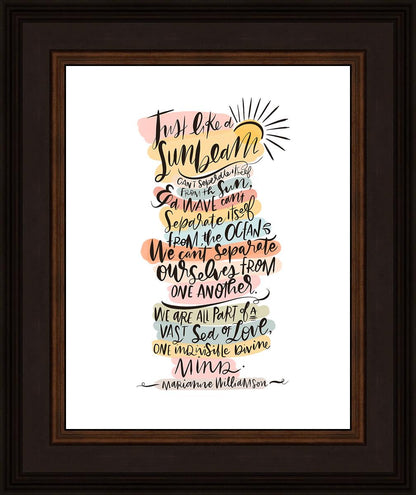 Just like a
Sunbeam
can't separate itself
from the Sun,
& a wave can't
Separate itself
from the Ocean,
We can't Separate
ourselves from
one another.
We are all part of a
vast Sea of Love,
one indivisible divine
mind.
Marianne Williamson